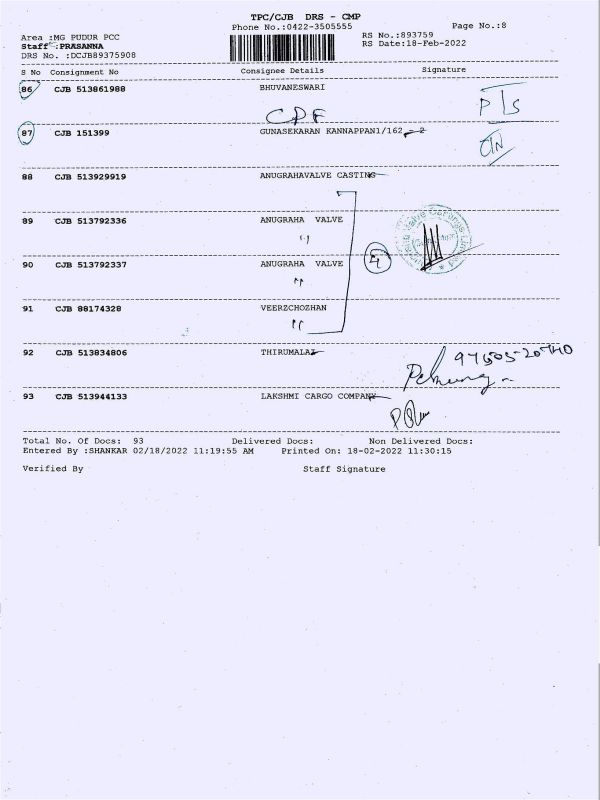 TPC/CJB DRS - CMP
Phone No.:0422-3505555
Page No.:8
Area :MG PUDUR PCC
RS No.:893759
Staff :PRASANNA
RS Date:18-Feb-2022
DRS No. :DCJB89375908
S No Consignment No Consignee Details Signature
86 CJB 513861988 BHUVANESWARI
CPF
P/S
87 CJB 151399 GUNASEKARAN KANNAPPAN1/162 - 2
88 CJB 513929919 ANUGRAHAVALVE CASTING
89 CJB 513792336 ANUGRAHA VALVE
"
90 CJB 513792337 ANUGRAHA VALVE
"
91 CJB 88174328 VEERZCHOZHAN
"
92 CJB 513834806 THIRUMALAI
93 CJB 513944133 LAKSHMI CARGO COMPANY
Total No. Of Docs: 93 Delivered Docs: Non Delivered Docs:
Entered By :SHANKAR 02/18/2022 11:19:55 AM Printed On: 18-02-2022 11:30:15
Verified By Staff Signature